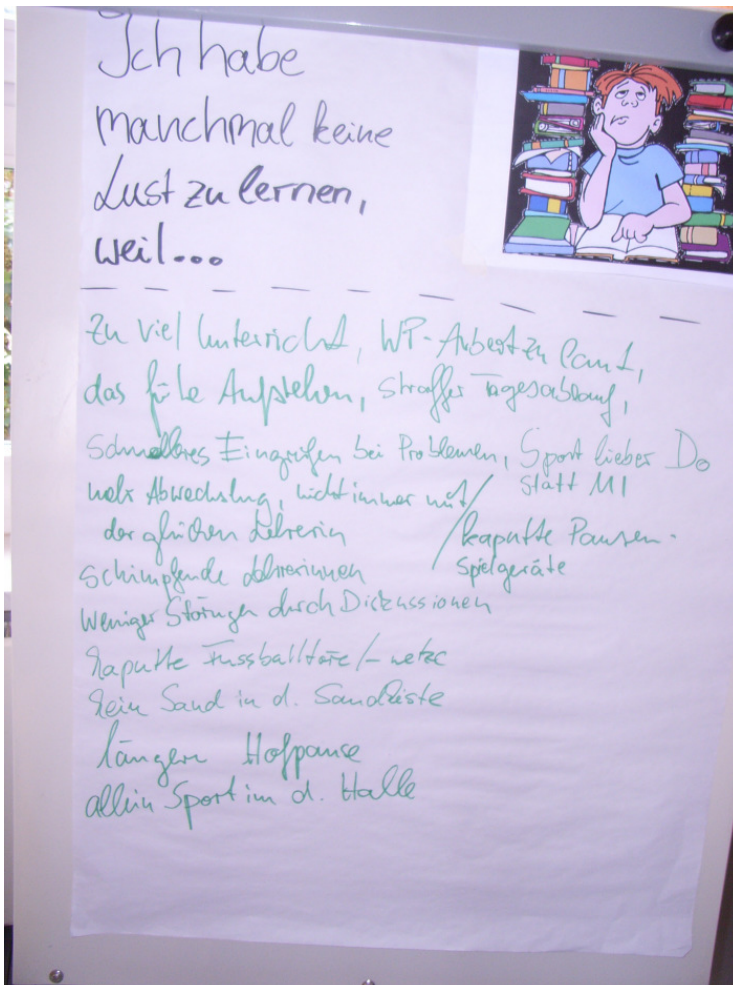 Ich habe
manchmal keine
Lust zu lernen,
weil...
zu viel Unterricht, WP-Arbeit zu laut,
das frühe Aufstehen, straffer Tagesablauf,
schnelleres Eingreifen bei Problemen, Sport lieber Do
statt MI
mehr Abwechslung, nicht immer mit
der gleichen Lehrerin
kaputte Pausen-
spielgeräte
schimpfende Lehrerinnen
weniger Störungen durch Diskussionen
kaputte Fussballtore/-netze
kein Sand in d. Sandkiste
längere Hofpause
allein Sport in d. Halle